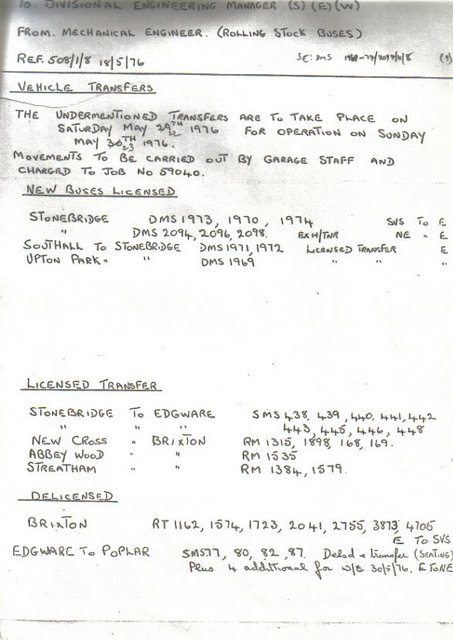 To. DIVISIONAL ENGINEERING MANAGER (S) (E) (W)
FROM. MECHANICAL ENGINEER. (ROLLING STOCK BUSES)
REF. 508/1/8 18/5/76
VEHICLE TRANSFERS
THE UNDERMENTIONED TRANSFERS ARE TO TAKE PLACE ON
SATURDAY MAY 29TH 1976 FOR OPERATION ON SUNDAY
MAY 30TH 1976.
MOVEMENTS TO BE CARRIED OUT BY GARAGE STAFF AND
CHARGED TO JOB NO 59040.
NEW BUSES LICENSED
STONEBRIDGE DMS 1973, 1970, 1974 SVS TO E
" DMS 2094, 2096, 2098. EXH/TNR NE " E
SOUTHALL TO STONEBRIDGE DMS 1971, 1972 LICENSED TRANSFER E
UPTON PARK " " DMS 1969 " " "
LICENSED TRANSFER
STONEBRIDGE TO EDGWARE SMS 438, 439, 440, 441, 442
" " " 443, 445, 446, 448
NEW CROSS " BRIXTON RM 1315, 1898, 168, 169.
ABBEY WOOD " " RM 1535
STREATHAM " " RM 1384, 1579.
DELICENSED
BRIXTON RT 1162, 1574, 1723, 2041, 2755, 3873, 4705
E TO SVS
EDGWARE TO POPLAR SMS 77, 80, 82, 87. Delsd & transfer (SEATING)
Plus 4 additional for w/e 30/5/76. E TO NE